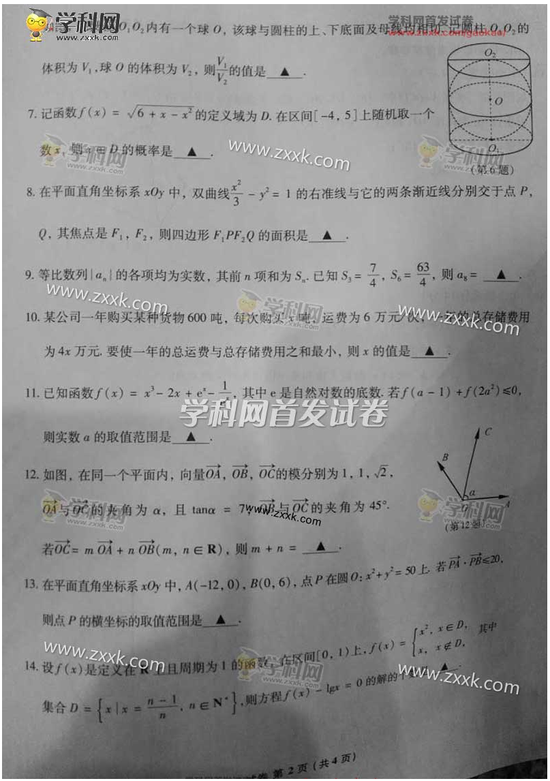 学科网
www.zxxk.com
学科网首发试卷
O₁O₂内有一个球 O，该球与圆柱的上、下底面及母线均相切.记圆柱 O₁O₂的
体积为 V₁,球 O 的体积为 V₂，则 V₁/V₂ 的值是 ▲ .
O₂
O
O₁
(第6题)
7. 记函数 f(x) = √(6 + x − x²) 的定义域为 D. 在区间[−4, 5]上随机取一个
数 x，则 x ∈ D 的概率是 ▲ .
学科网
www.zxxk.com
8. 在平面直角坐标系 xOy 中，双曲线 x²/3 − y² = 1 的右准线与它的两条渐近线分别交于点 P,
Q, 其焦点是 F₁，F₂，则四边形 F₁PF₂Q 的面积是 ▲ .
9. 等比数列{aₙ}的各项均为实数，其前 n 项和为 Sₙ. 已知 S₃ = 7/4, S₆ = 63/4, 则 a₈ = ▲ .
www.zxxk.com
学科网
www.zxxk.com
10. 某公司一年购买某种货物 600 吨，每次购买 x 吨，运费为 6 万元/次，一年的总存储费用
为 4x 万元. 要使一年的总运费与总存储费用之和最小，则 x 的值是 ▲ .
11. 已知函数 f(x) = x³ − 2x + eˣ − 1/, 其中 e 是自然对数的底数. 若 f(a − 1) + f(2a²) ≤ 0,
学科网首发试卷
则实数 a 的取值范围是 ▲ .
12. 如图，在同一个平面内，向量OA，OB，OC的模分别为 1, 1, √2,
OA与OC的夹角为 α，且 tanα = 7，OB与OC的夹角为 45°.
若OC = m OA + n OB(m, n ∈ R)，则 m + n = ▲ .
C
B
α
A
(第12题)
学科网
www.zxxk.com
学科网
13. 在平面直角坐标系 xOy 中，A(−12, 0)，B(0, 6)，点 P 在圆 O: x² + y² = 50 上. 若 PA · PB ≤ 20,
则点 P 的横坐标的取值范围是 ▲ .
14. 设 f(x)是定义在 R 上且周期为 1 的函数，在区间[0, 1)上，f(x) = { x², x ∈ D, x, x ∉ D, 其中
集合 D = { x | x = (n − 1)/n, n ∈ N* }，则方程 f(x) − lgx = 0 的解的个数是 ▲ .
www.zxxk.com
学科网
www.zxxk.com
试卷 第 2 页 (共 4 页)